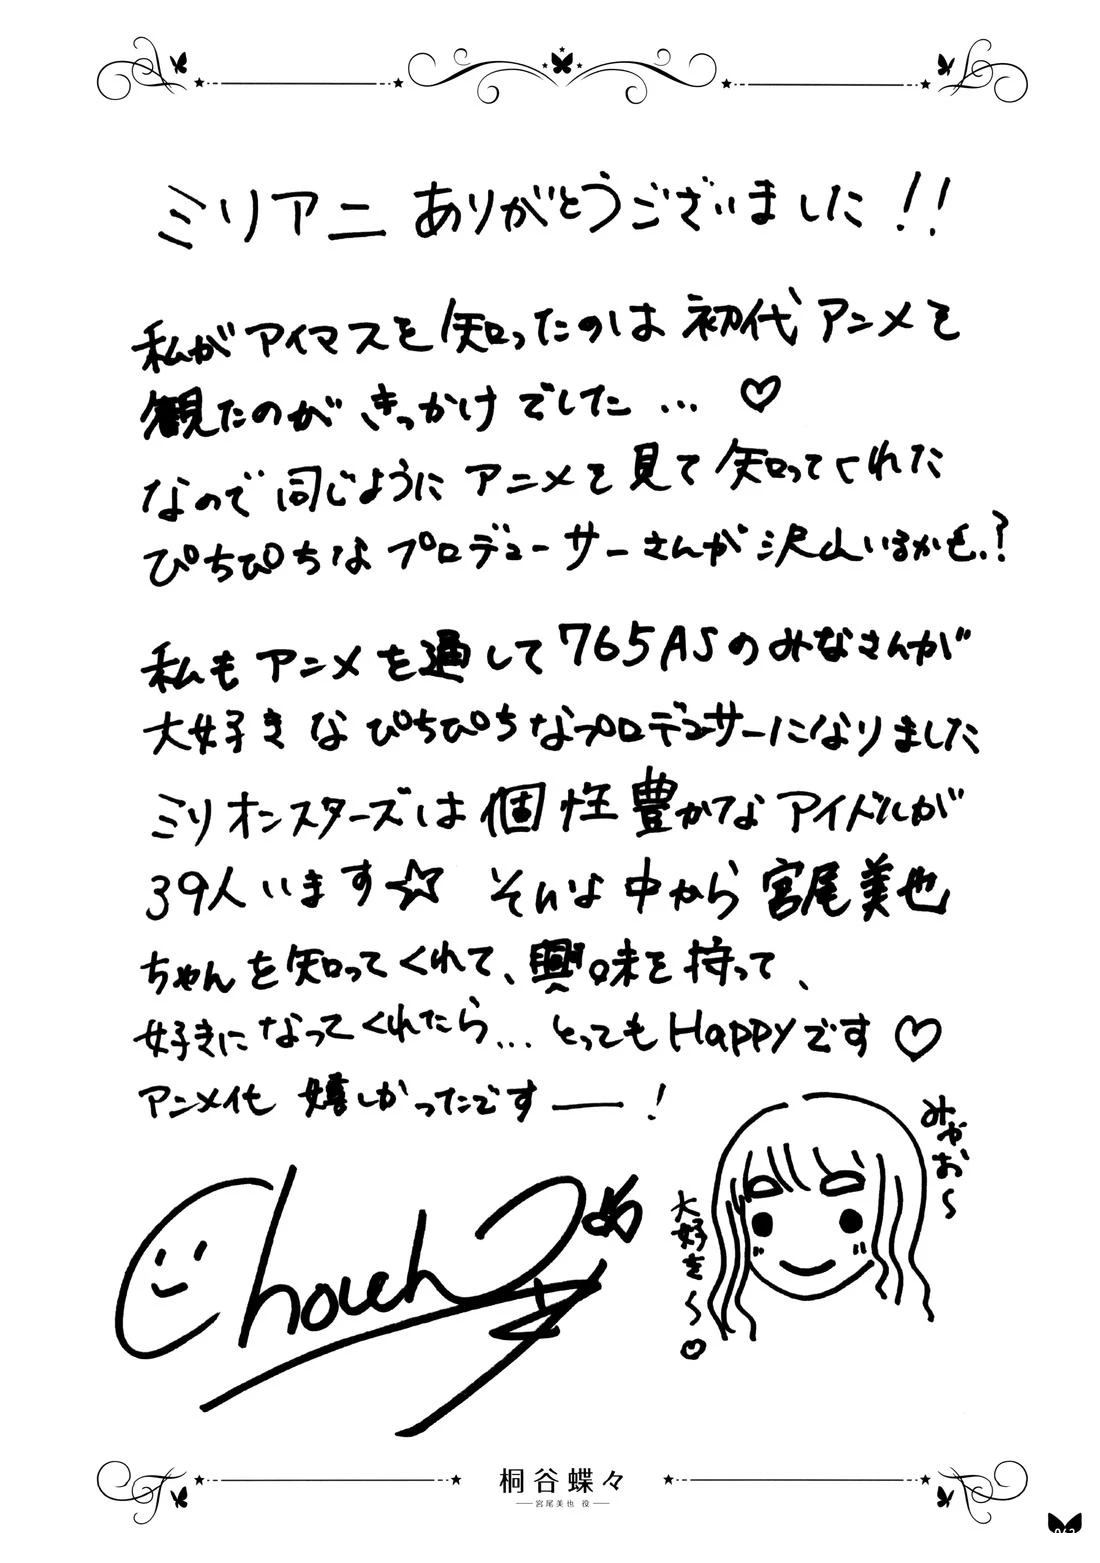 ミリアニ ありがとうございました!!
私がアイマスを知ったのは初代アニメを
観たのがきっかけでした…♡
なので同じようにアニメを見て知ってくれた
ぴちぴちなプロデューサーさんが沢山いるかも.?
私もアニメを通して765ASのみなさんが
大好きなぴちぴちなプロデューサーになりました
ミリオンスターズは個性豊かなアイドルが
39人います☆ そんな中から宮尾美也
ちゃんを知ってくれて、興味を持って、
好きになってくれたら…とってもHappyです♡
アニメ化も嬉しかったですー!
みゃお〜
大好き〜♡
Chouch
桐谷蝶々
宮尾美也 役